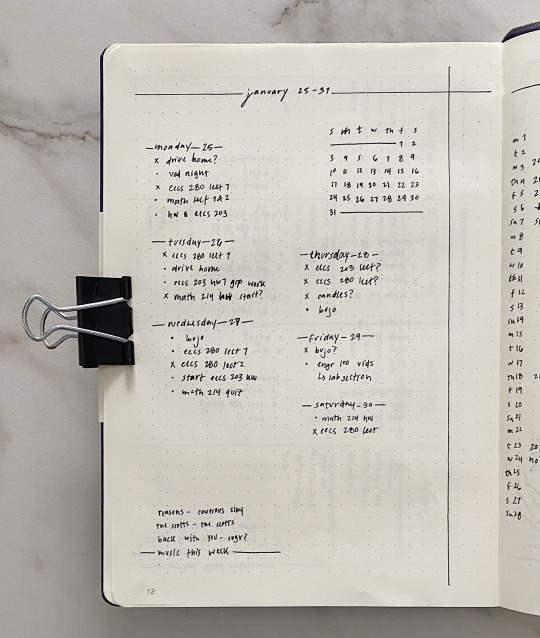 january 25-31
s m t w th f s
1 2
3 4 5 6 7 8 9
10 11 12 13 14 15 16
17 18 19 20 21 22 23
24 25 26 27 28 29 30
31
monday - 25
x drive home?
• vod night
x eecs 280 lect 7
• math lect 1&2
• hw 8 eecs 203
tuesday - 26
x eecs 280 lect 7
• drive home
• eecs 203 hw7 grp work
x math 214 start?
wednesday - 27
• bujo
• eecs 280 lect 7
x eecs 280 lect 2
• start eecs 203 hw
• math 214 quiz
thursday - 28
x eecs 203 lect?
x eecs 280 lect?
x candles?
• bujo
friday - 29
x bujo?
• engr 100 vids
↳ lab section
saturday - 30
• math 214 hw
x eecs 280 lect
reasons - cautious clay
the scotts - the scotts
back with you -
music this week
12
m 1
t 2
w 3
th 4
f 5
s 6
su 7
m 8
t 9
w 10
th 11
f 12
s 13
su 14
m 15
t 16
w 17
th 18
f 19
s 20
su 21
m 22
t 23
w 24
th 25
f 26
s 27
su 28